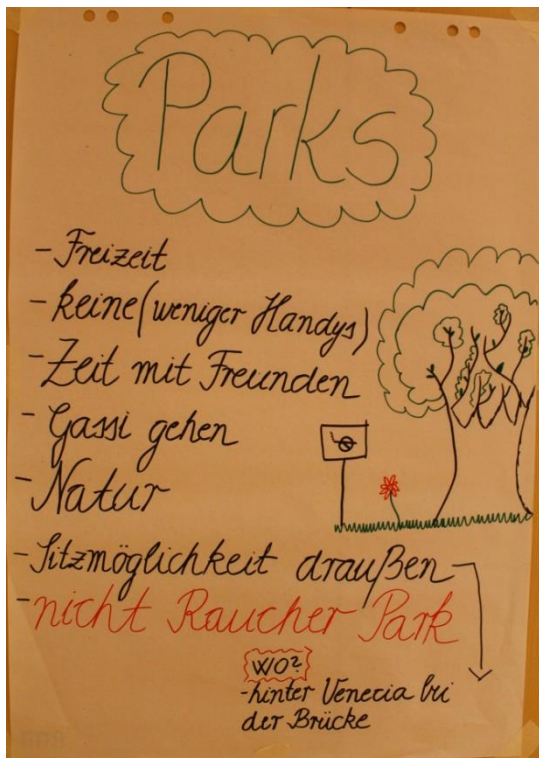 Parks
- Freizeit
- keine (weniger Handys)
- Zeit mit Freunden
- Gassi gehen
- Natur
- Sitzmöglichkeit draußen
- nicht Raucher Park
WO?
- hinter Venecia bei
der Brücke